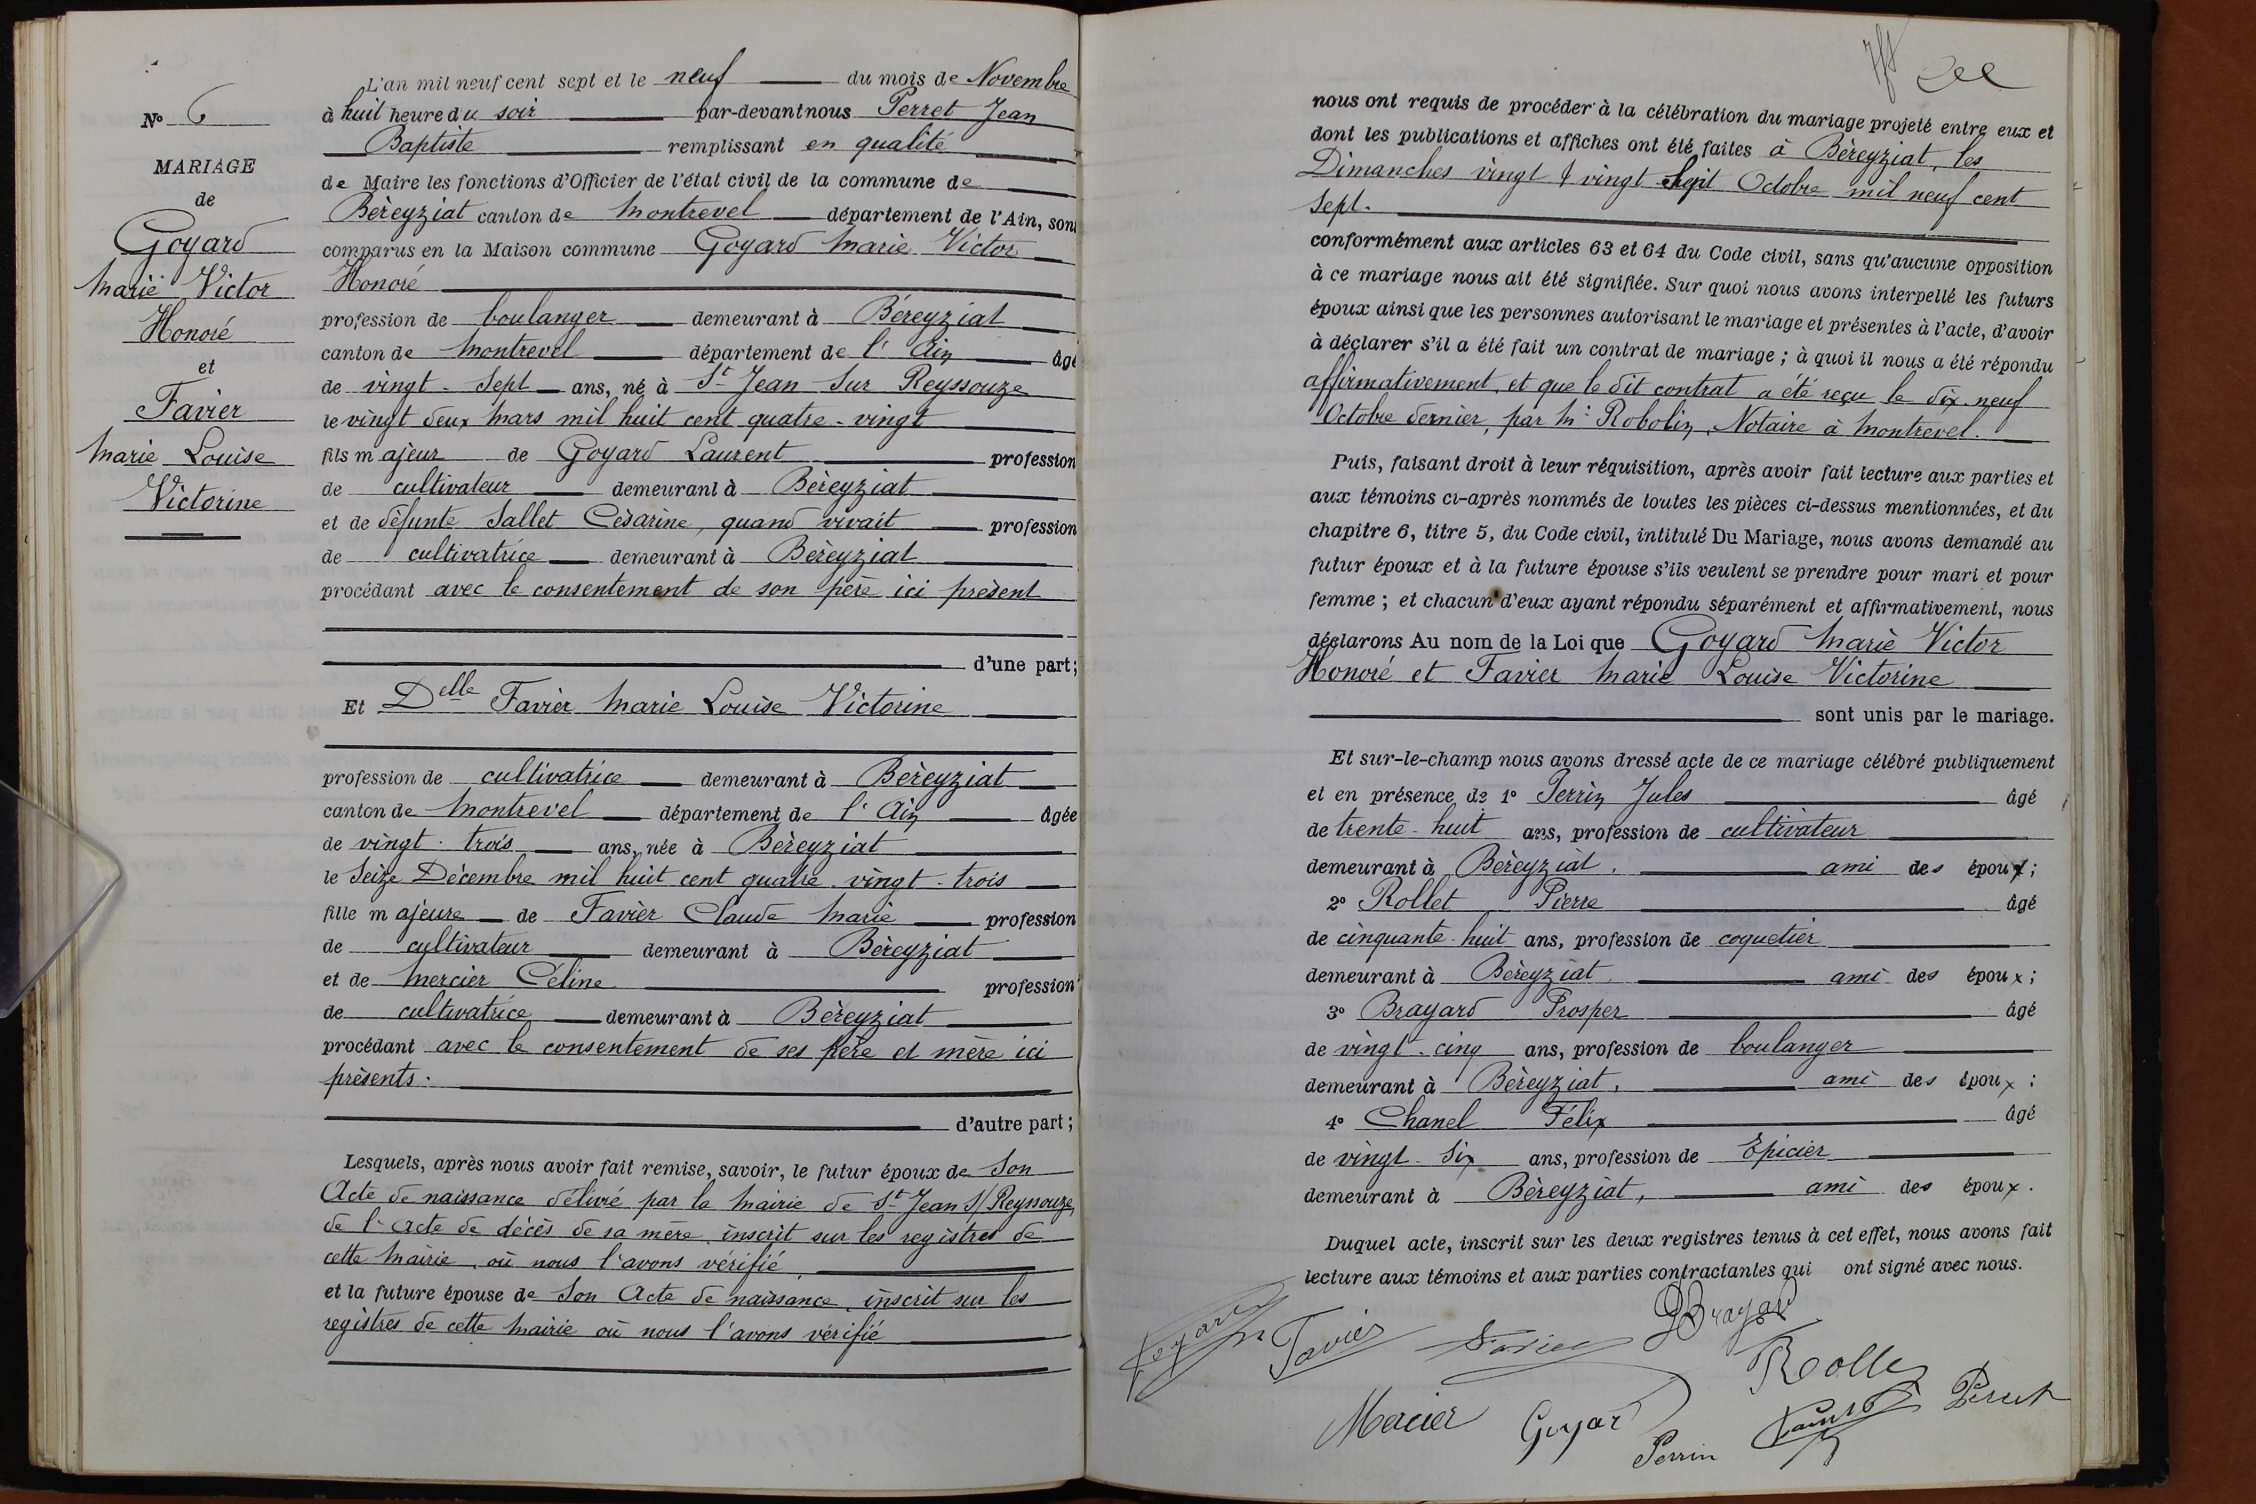 N° 6
MARIAGE
de
Goyard
Marie Victor
Honoré
et
Favier
Marie Louise
Victorine
L'an mil neuf cent sept et le neuf du mois de Novembre
à huit heure du soir par-devant nous Perret Jean
Baptiste remplissant en qualité
de Maire les fonctions d'Officier de l'état civil de la commune de
Béreyziat canton de Montrevel département de l'Ain, sont
comparus en la Maison commune Goyard Marie Victor
Honoré
profession de boulanger demeurant à Béreyziat
canton de Montrevel département de l'Ain âgé
de vingt-sept ans, né à St Jean sur Reyssouze
le vingt deux Mars mil huit cent quatre-vingt
fils majeur de Goyard Laurent profession
de cultivateur demeurant à Béreyziat
et de défunte Sallet Césarine, quand vivait profession
de cultivatrice demeurant à Béreyziat
procédant avec le consentement de son père ici présent
d'une part;
Et Delle Favier Marie Louise Victorine
profession de cultivatrice demeurant à Béreyziat
canton de Montrevel département de l'Ain âgée
de vingt-trois ans, née à Béreyziat
le Seize Décembre mil huit cent quatre-vingt-trois
fille majeure de Favier Claude Marie profession
de cultivateur demeurant à Béreyziat
et de Mercier Céline profession
de cultivatrice demeurant à Béreyziat
procédant avec le consentement de ses père et mère ici
présents.
d'autre part;
Lesquels, après nous avoir fait remise, savoir, le futur époux de Son
Acte de naissance délivré par la Mairie de St Jean s/ Reyssouze,
de l'acte de décès de sa mère, inscrit sur les registres de
cette Mairie, où nous l'avons vérifié,
et la future épouse de Son Acte de naissance, inscrit sur les
registres de cette Mairie où nous l'avons vérifié
nous ont requis de procéder à la célébration du mariage projeté entre eux et
dont les publications et affiches ont été faites à Béreyziat, les
Dimanches vingt & vingt Sept Octobre mil neuf cent
sept.
conformément aux articles 63 et 64 du Code civil, sans qu'aucune opposition
à ce mariage nous ait été signifiée. Sur quoi nous avons interpellé les futurs
époux ainsi que les personnes autorisant le mariage et présentes à l'acte, d'avoir
à déclarer s'il a été fait un contrat de mariage; à quoi il nous a été répondu
affirmativement, et que le dit contrat a été reçu le dix-neuf
Octobre dernier, par Me Robolin, Notaire à Montrevel.
Puis, faisant droit à leur réquisition, après avoir fait lecture aux parties et
aux témoins ci-après nommés de toutes les pièces ci-dessus mentionnées, et du
chapitre 6, titre 5, du Code civil, intitulé Du Mariage, nous avons demandé au
futur époux et à la future épouse s'ils veulent se prendre pour mari et pour
femme; et chacun d'eux ayant répondu séparément et affirmativement, nous
déclarons Au nom de la Loi que Goyard Marie Victor
Honoré et Favier Marie Louise Victorine
sont unis par le mariage.
Et sur-le-champ nous avons dressé acte de ce mariage célébré publiquement
et en présence de 1° Perrin Jules âgé
de trente-huit ans, profession de cultivateur
demeurant à Béreyziat, ami des époux;
2° Rollet Pierre âgé
de cinquante-huit ans, profession de coquetier
demeurant à Béreyziat, ami des époux;
3° Brayard Prosper âgé
de vingt-cinq ans, profession de boulanger
demeurant à Béreyziat, ami des époux;
4° Chanel Félix âgé
de vingt-six ans, profession de Epicier
demeurant à Béreyziat, ami des époux.
Duquel acte, inscrit sur les deux registres tenus à cet effet, nous avons fait
lecture aux témoins et aux parties contractantes qui ont signé avec nous.
Goyard Favier Favier Brayard
Rollet
Mercier Goyard Perrin Perret